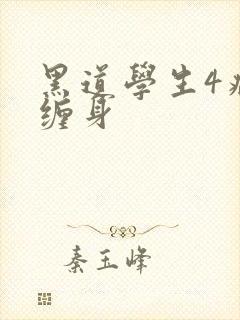 黑道學生4
缠身
秦玉峰